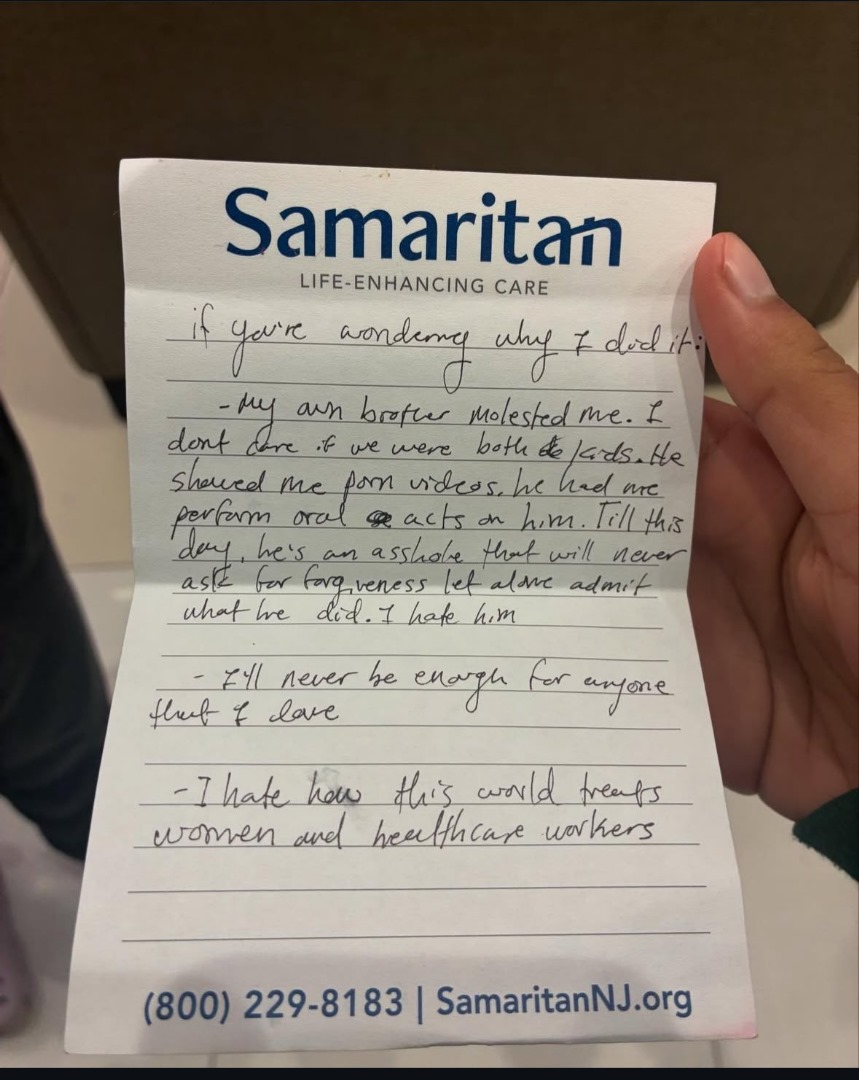 Samaritan
LIFE-ENHANCING CARE
if you're wondering why I did it:
- My own brother molested me. I
dont care if we were both kids. He
showed me porn videos, he had me
perform oral acts on him. Till this
day, he's an asshole that will never
ask for forgiveness let alone admit
what he did. I hate him
- I'll never be enough for anyone
that I love
- I hate how this world treats
women and healthcare workers
(800) 229-8183 | SamaritanNJ.org